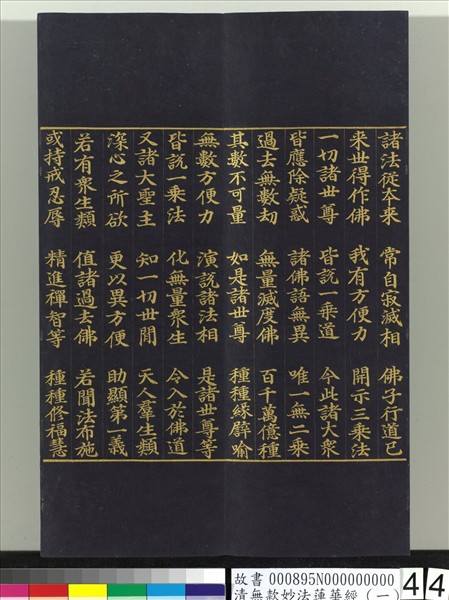 諸法從本來　常自寂滅相　佛子行道已
来世得作佛　我有方便力　開示三乘法
一切諸世尊　皆説一乘道　今此諸大衆
皆應除疑惑　諸佛語無異　唯一無二乘
過去無數劫　無量滅度佛　百千萬億種
其數不可量　如是諸世尊　種種緣譬喻
無數方便力　演説諸法相　是諸世尊等
皆説一乘法　化無量衆生　令入於佛道
又諸大聖主　知一切世間　天人羣生類
深心之所欲　更以異方便　助顯第一義
若有衆生類　值諸過去佛　若聞法布施
或持戒忍辱　精進禪智等　種種修福慧
故書 000895N000000000
清無款妙法蓮華經（一）
44